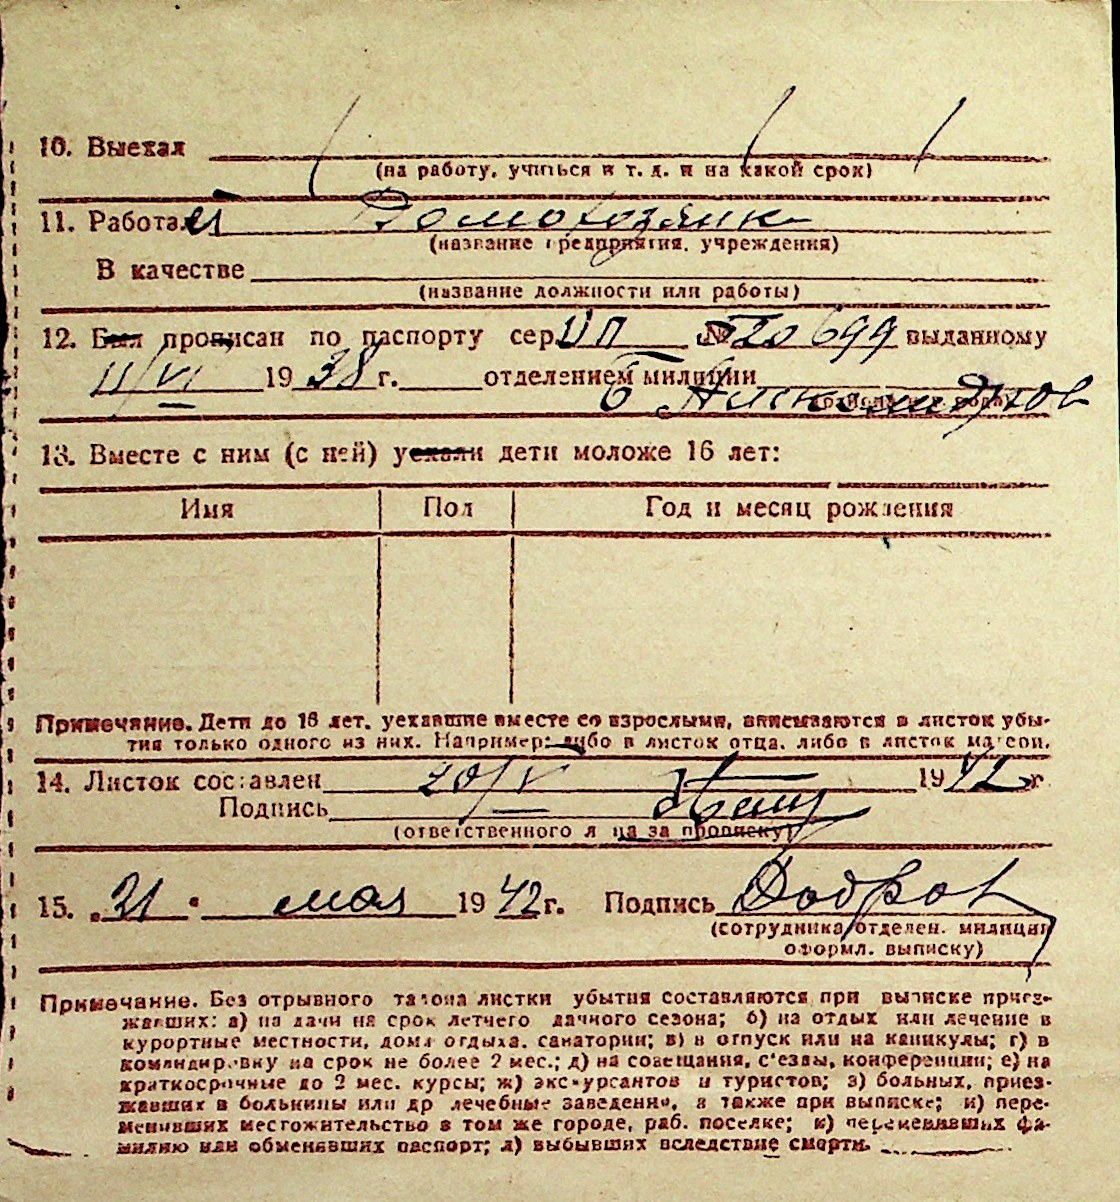 10. Выехал
(на работу, учиться и т. д. и на какой срок)
11. Работал Домохозяйк
(название предприятия, учреждения)
В качестве
(название должности или работы)
12. Был прописан по паспорту сер. № 520699 выданному
11/VI 1938 г. отделением милиции
6
13. Вместе с ним (с ней) уехали дети моложе 16 лет:
Имя Пол Год и месяц рождения
Примечание. Дети до 16 лет, уехавшие вместе со взрослыми, вписываются в листок убы-
тия только одного из них. Например: либо в листок отца, либо в листок матери.
14. Листок составлен 20/V 1942 г.
Подпись
(ответственного л на за прописку)
15. „31“ мая 1942 г. Подпись Добров
(сотрудника отделен. милиции
оформл. выписку)
Примечание. Без отрывного талона листки убытия составляются при выписке приез-
жавших: а) на дачи на срок летнего дачного сезона; б) на отдых или лечение в
курортные местности, дома отдыха, санатории; в) в отпуск или на каникулы; г) в
командировку на срок не более 2 мес.; д) на совещания, с'езды, конференции; е) на
краткосрочные до 2 мес. курсы; ж) экскурсантов и туристов; з) больных, приез-
жавших в больницы или др лечебные заведения, а также при выписке; и) пере-
менивших местожительство в том же городе, раб. поселке; к) переменивших фа-
милию или обменявших паспорт; л) выбывших вследствие смерти.